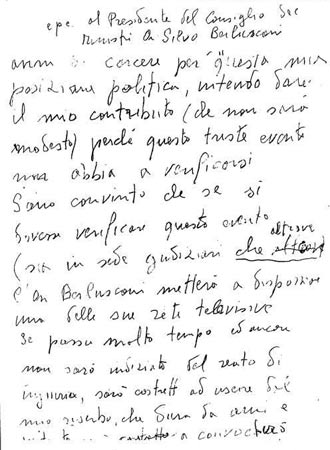 e p.c. al Presidente del Consiglio dei
Ministri On Silvio Berlusconi
anni di carcere per questa mia
posizione politica, intendo dare
il mio contributo (che non sarà
modesto) perché questo triste evento
non abbia a verificarsi
Sono convinto che se si
dovesse verificare questo evento
(sia in sede giudiziari che altrove
l'on Berlusconi metterà a disposizione
una delle sue reti televisive
Se passa molto tempo ed ancora
non sarò indiziato del reato di
ingiuria, sarò costretto ad uscire dal
mio riserbo che dura da anni e
a convocherò